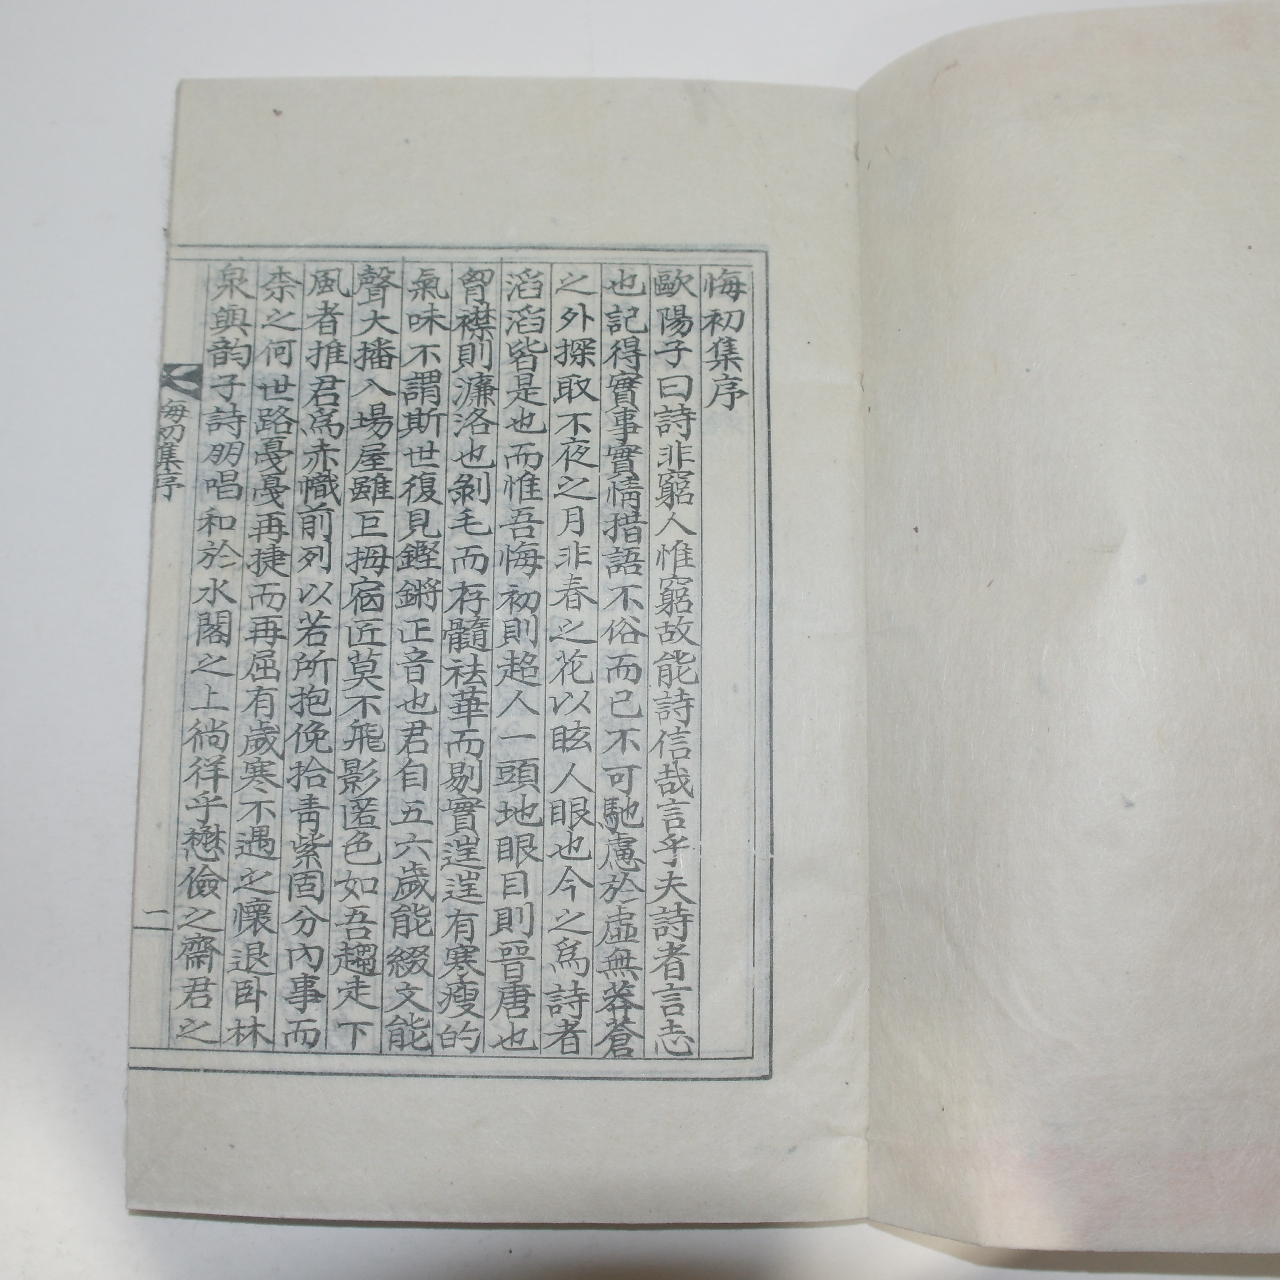 悔初集序
歐陽子曰詩非窮人惟窮故能詩信哉言乎夫詩者言志
也記得實事實情措語不俗而已不可馳慮於虛無莽蒼
之外探取不夜之月非春之花以眩人眼也今之爲詩者
滔滔皆是也而惟吾悔初則超人一頭地眼目則晉唐也
胷襟則濂洛也剝毛而存髓祛華而剔實逞逞有寒瘦的
氣味不謂斯世復見鏗鏘正音也君自五六歲能綴文能
聲大播入場屋雖巨拇宿匠莫不能影匿色如吾趨走下
風者推君爲赤幟前列以若所抱俛拾靑紫固分內事而
柰之何世路戞戞再捷而再屈有歲寒不遇之懷退卧林
泉與韵子詩朋唱和於水閣之上徜徉乎懋儉之齋君之
悔初集序
二